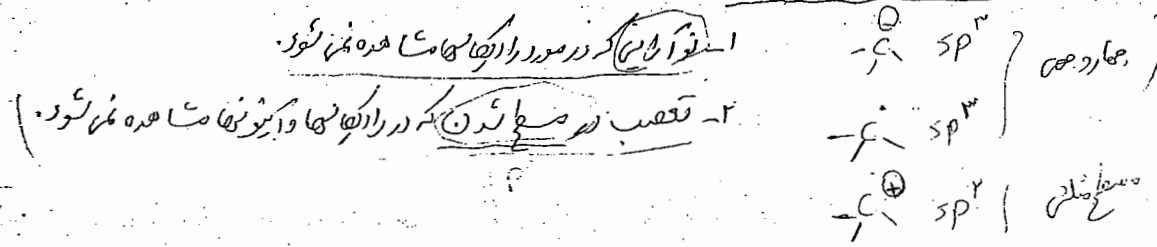 ۱- نوآرایی که در مورد رادیکالها مشاهده نمی شود.
۲- تعصب در مسطح شدن که در رادیکالها و آنیونها مشاهده نمی شود.
؟
⊖
-C- sp³
چهاروجهی
-C- sp³
⊕
-C- sp²
مسطح مثلثی